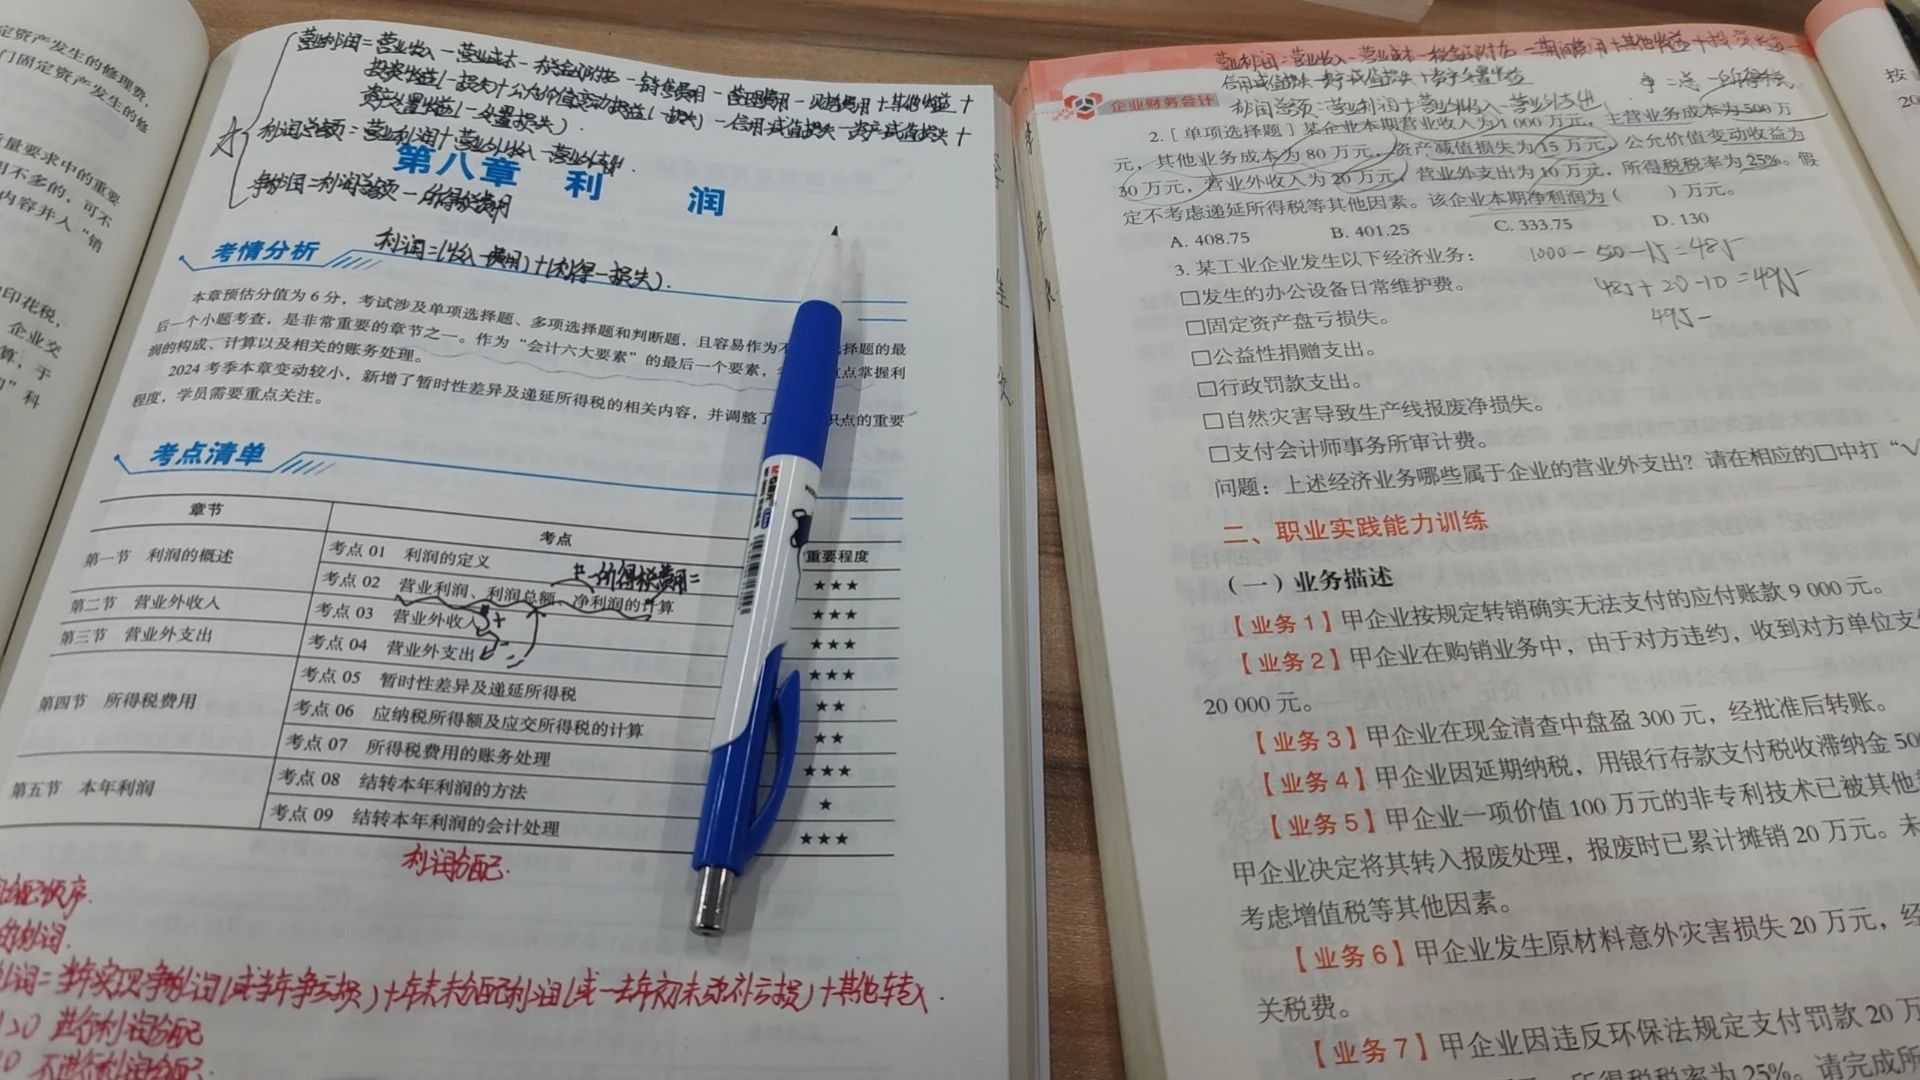 定资产发生的修理费,
门固定资产发生的修
质量要求中的重要
用不多的, 可不
内容并入“销
印花税,
企业交
算, 于
” 科
营业利润=营业收入-营业成本-税金及附加-销售费用-管理费用-财务费用+其他收益+
投资收益(-损失)+公允价值变动损益(-损失)-信用减值损失-资产减值损失+
资产处置收益(-处置损失).
利润总额=营业利润+营业外收入-营业外支出.
第八章 利 润
净利润=利润总额-所得税费用
利润=(收入-费用)+(利得-损失).
考情分析
本章预估分值为 6 分, 考试涉及单项选择题、多项选择题和判断题, 且容易作为不 择题的最
后一个小题考查, 是非常重要的章节之一。作为“会计六大要素”的最后一个要素, 点掌握利
润的构成、计算以及相关的账务处理。
2024 考季本章变动较小, 新增了暂时性差异及递延所得税的相关内容, 并调整了 识点的重要
程度, 学员需要重点关注。
考点清单
章节 考点 重要程度
第一节 利润的概述 考点 01 利润的定义 ★★★
考点 02 营业利润、利润总额、净利润的计算 ★★★
-所得税费用=
第二节 营业外收入 考点 03 营业外收入 ★★★
第三节 营业外支出 考点 04 营业外支出 ★★★
第四节 所得税费用 考点 05 暂时性差异及递延所得税 ★★
考点 06 应纳税所得额及应交所得税的计算 ★★
考点 07 所得税费用的账务处理 ★★★
第五节 本年利润 考点 08 结转本年利润的方法 ★
考点 09 结转本年利润的会计处理 ★★★
利润分配.
配顺序.
的利润.
利润=当年实现净利润(或当年净亏损)+年末未分配利润(或-去年初未弥补亏损)+其他转入.
>0 进行利润分配
0 不进行利润分配.
营业利润=营业收入-营业成本-税金及附加-期间费用+其他收益+投资收益-
信用减值损失-资产减值损失+资产处置收益
净=总-所得税
利润总额=营业利润+营业外收入-营业外支出
企业财务会计
2. [ 单项选择题 ] 某企业本期营业收入为 1 000 万元, 主营业务成本为 500 万
元, 其他业务成本为 80 万元, 资产减值损失为 15 万元, 公允价值变动收益为
30 万元, 营业外收入为 20 万元, 营业外支出为 10 万元, 所得税税率为 25%。假
定不考虑递延所得税等其他因素。该企业本期净利润为( )万元。
A. 408.75 B. 401.25 C. 333.75 D. 130
3. 某工业企业发生以下经济业务:
1000-500-15=485
□发生的办公设备日常维护费。
485+20-10=495
□固定资产盘亏损失。
495-
□公益性捐赠支出。
□行政罚款支出。
□自然灾害导致生产线报废净损失。
□支付会计师事务所审计费。
问题: 上述经济业务哪些属于企业的营业外支出? 请在相应的□中打“√
二、职业实践能力训练
(一) 业务描述
【业务 1】甲企业按规定转销确实无法支付的应付账款 9 000 元。
【业务 2】甲企业在购销业务中, 由于对方违约, 收到对方单位支
20 000 元。
【业务 3】甲企业在现金清查中盘盈 300 元, 经批准后转账。
【业务 4】甲企业因延期纳税, 用银行存款支付税收滞纳金 500
【业务 5】甲企业一项价值 100 万元的非专利技术已被其他
甲企业决定将其转入报废处理, 报废时已累计摊销 20 万元。未
考虑增值税等其他因素。
【业务 6】甲企业发生原材料意外灾害损失 20 万元, 经
关税费。
【业务 7】甲企业因违反环保法规定支付罚款 20 万
所得税税率为 25%。请完成所
按
20